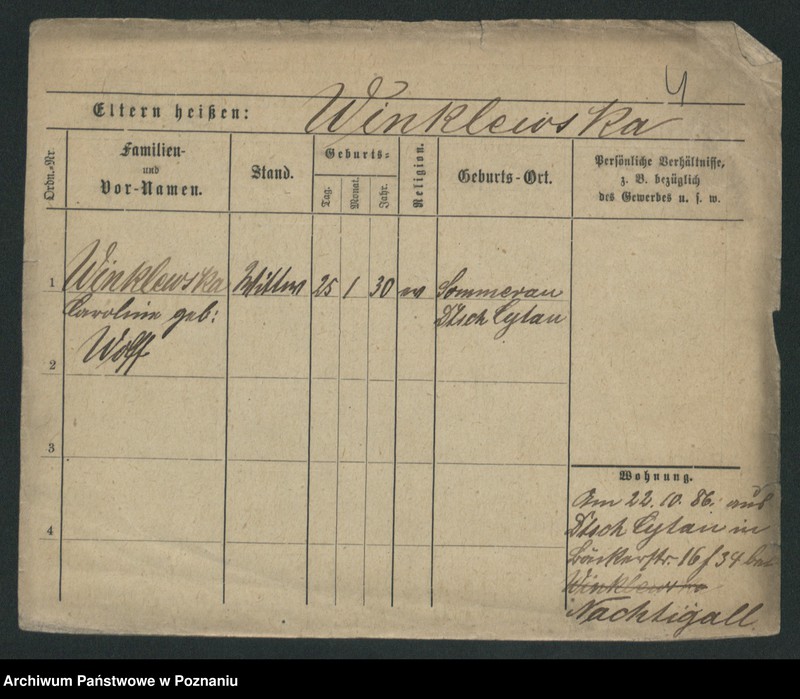 4
Eltern heißen: Winklewska
Ordn.-Nr.
Familien-
und
Vor-Namen.
Stand.
Geburts-
Tag.
Monat.
Jahr.
Religion.
Geburts-Ort.
Persönliche Verhältnisse,
z. B. bezüglich
des Gewerbes u. s. w.
1 Winklewska Wittw 25 1 30 ev Sommerau
Caroline geb: Dtsch Eylau
Wolff
2
3
4
Wohnung.
Am 22.10.86. aus
Dtsch Eylau in
Bäckerstr. 16/34 bei
Winklewska
Nachtigall
Archiwum Państwowe w Poznaniu